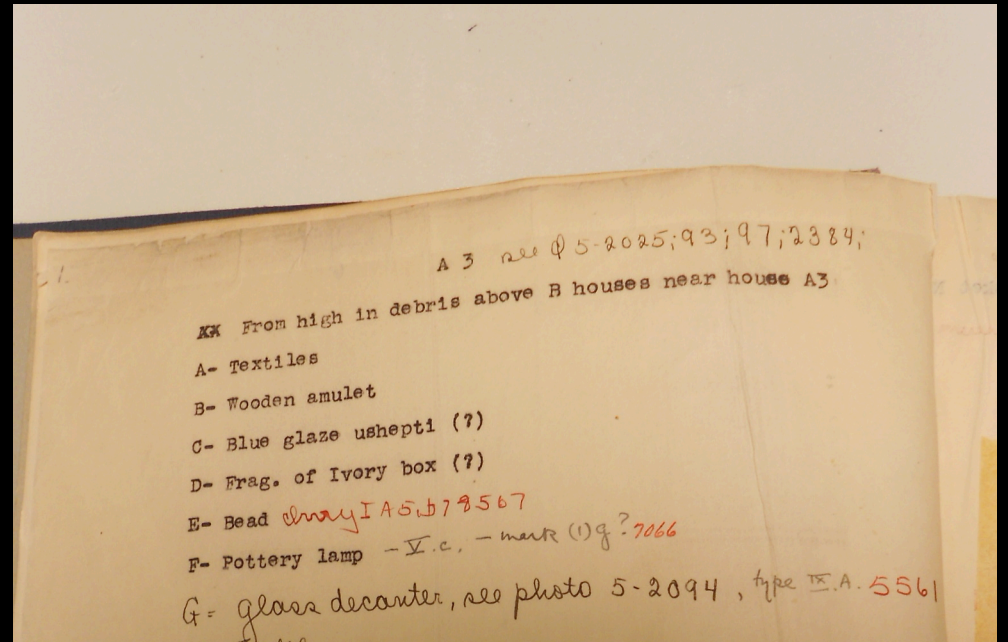 A 3 see φ 5-2025;93;97;2384;
XX From high in debris above B houses near house A3
A- Textiles
B- Wooden amulet
C- Blue glaze ushepti (?)
D- Frag. of Ivory box (?)
E- Bead Ivory I A5.b7 8567
F- Pottery lamp - V.c. - mark (1) g? 7066
G= glass decanter, see photo 5-2094, type IX.A. 5561